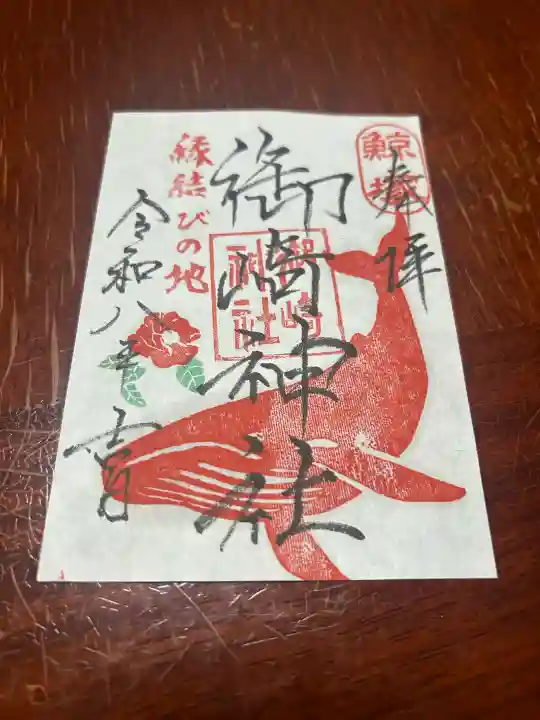 鯨塚
奉拝
御崎神社
御崎神社
縁結びの地
令和八年